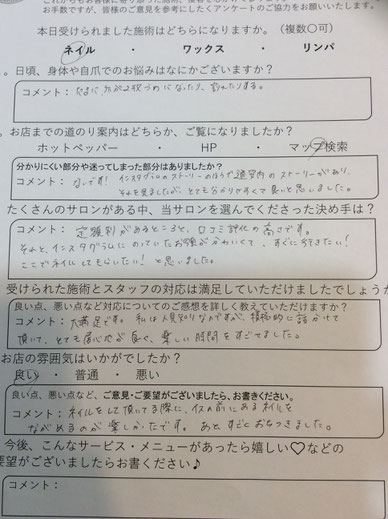 お手数ですが、皆様のご意見を参考にしたくアンケートのご協力をお願いいたします。
本日受けられました施術はどちらになりますか。（複数〇可）
ネイル ・ ワックス ・ リンパ
。日頃、身体や自爪でのお悩みはなにかございますか？
コメント：たまに爪が2枚づめになったり、割れたりする。
。お店までの道のり案内はどちらか、ご覧になりましたか？
ホットペッパー ・ HP ・ マップ検索
分かりにくい部分や迷ってしまった部分はありましたか？
コメント：なしです！ インスタグラムのストーリーのほうが道案内のストーリーがあり、
それを見ましたが、とても分かりやすくて良いと思いました。
たくさんのサロンがある中、当サロンを選んでくださった決め手は？
コメント：定額制があるところと、口コミ評価の高さです。
それと、インスタグラムにのっていたお顔がかわいくて、すぐに行きたい！
ここでネイルしてもらいたい！と思いました。
受けられた施術とスタッフの対応は満足していただけましたでしょうか
良い点、悪い点など対応についてのご感想を詳しく教えていただけますか？
コメント：大満足です。私は人見知りなんですが、積極的に話かけて
頂いて、とても居心地が良く、楽しい時間をすごせました。
お店の雰囲気はいかがでしたか？
良い ・ 普通 ・ 悪い
良い点、悪い点など、ご意見・ご要望がございましたら、お書きください。
コメント：ネイルをして頂いてる際に、イスの前にあるネイルを
ながめるのが楽しかったです。あと、すごくおちつきました。
今後、こんなサービス・メニューがあったら嬉しい♡などの
要望がございましたらお書ください♪
コメント：